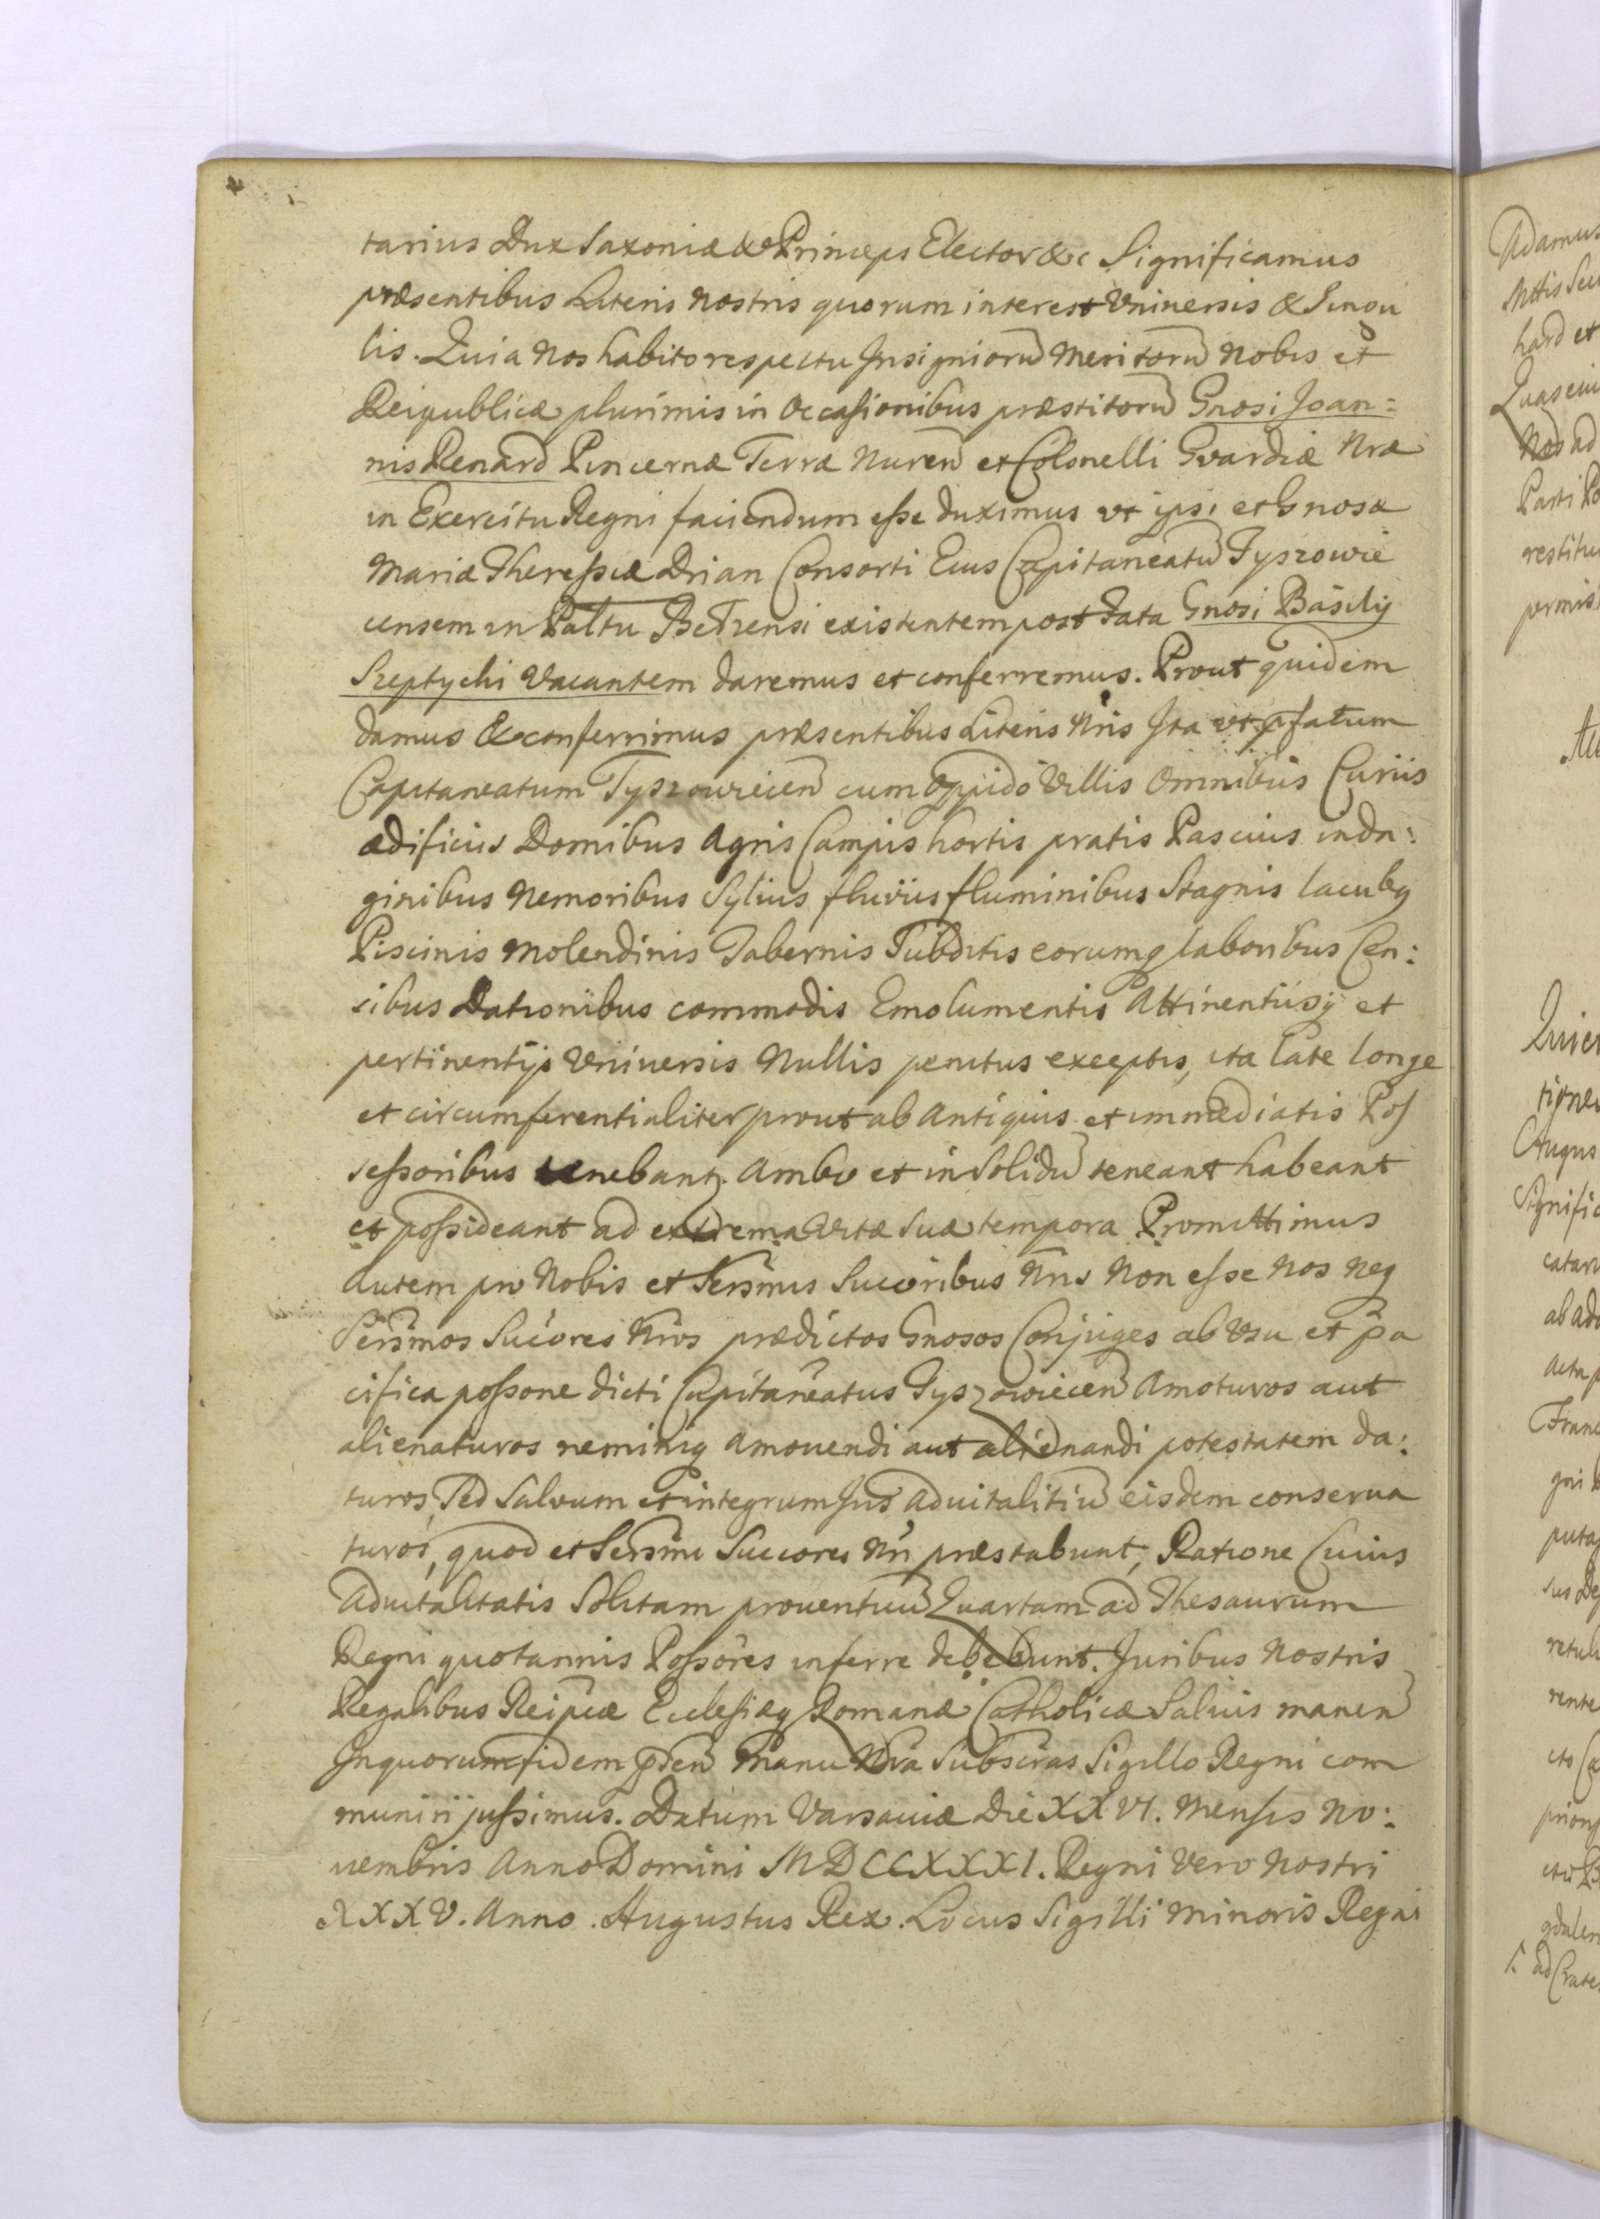 tarius Dux Saxoniæ & Princeps Elector &c Significamus
præsentibus Literis nostris quorum interest Vniuersis & Singu
lis. Quia Nos habito respectu Insigniorū Meritorū Nobis et
Reipublicæ plurimis in Occasionibus præstitorū Gnosi Joan=
nis Renard Pincernæ Terræ Nuren̄ et Colonelli Gvardiæ Nræ
in Exercitu Regni faciendum esse duximus vt ipsi et Gnosæ
Mariæ Theressiæ Drian Consorti Eius Capitaneatū Tyszowie
censem in Pāltu Bełzensi existentem post Fata Gnosi Basilij
Szeptycki Vacantem daremus et conferremus. Prout quidem
damus & conferrimus præsentibus Literis Nris Ita vt pfatum
Capitaneatum Tyszowiecen̄ cum Oppido Villis Omnibus Curiis
ædificiis Domibus Agris Campis hortis pratis Pascuis inda:
ginibus Nemoribus Syluis fluviis fluminibus Stagnis lacubq
Piscinis Molendinis Tabernis Subditis eorumq laboribus Cen:
sibus Dationibus commodis Emolumentis Attinentiisq et
pertinentijs Vniuersis Nullis penitus exceptis, ita late longe
et circumferentialiter prout ab Antiquis et immediatis Pos
sessoribus tenebantr. Ambo et in Solidū teneant habeant
et possideant ad extrema Vitæ Suæ tempora Promittimus
Autem pro Nobis et Sersmis Succoribus Nris Non esse Nos Neq
Sersmos Succores Nros prædictos Gnosos Conjuges ab Vsu et pa
cifica possone dicti Capitaneatus Tyszowiecen̄ Amoturos aut
alienaturos neminiq Amouendi aut alienandi potestatem da:
turos, Sed Saluum et integrum Jus Aduitalitiū eisdem conserua
turos, quod et Sersmi Succores Nri præstabunt, Ratione Cuius
Aduitalitatis Solitam prouentuū Quartam ad Thesaurum
Regni quotannis Possores inferre debebunt. Juribus Nostris
Regalibus Reipcæ Ecclesiæq Romanæ Catholicæ Saluis manen̄
In quorum fidem pden̄ Manu Nra Subscras Sigillo Regni com
muniri jussimus. Datum Varsaviæ Die XXVI. Mensis No:
uembris Anno Domini MDCCXXXI. Regni Vero Nostri
XXXV. Anno. Augustus Rex. Locus Sigilli Minoris Regni